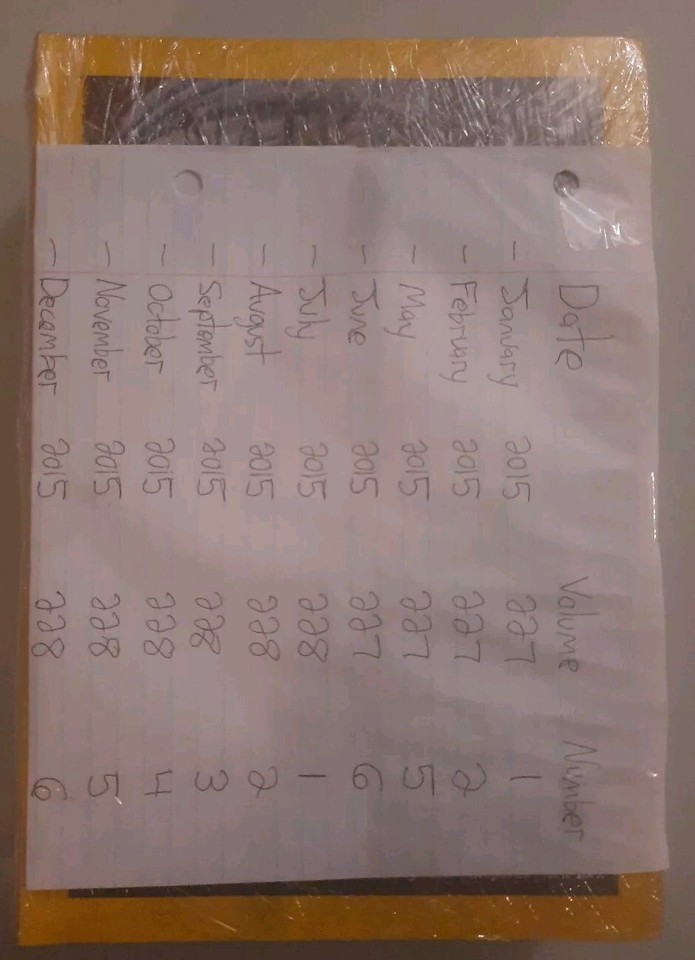 Date Volume Number
- January 2015 227 1
- February 2015 227 2
- May 2015 227 5
- June 2015 227 6
- July 2015 228 1
- August 2015 228 2
- September 2015 228 3
- October 2015 228 4
- November 2015 228 5
- December 2015 228 6